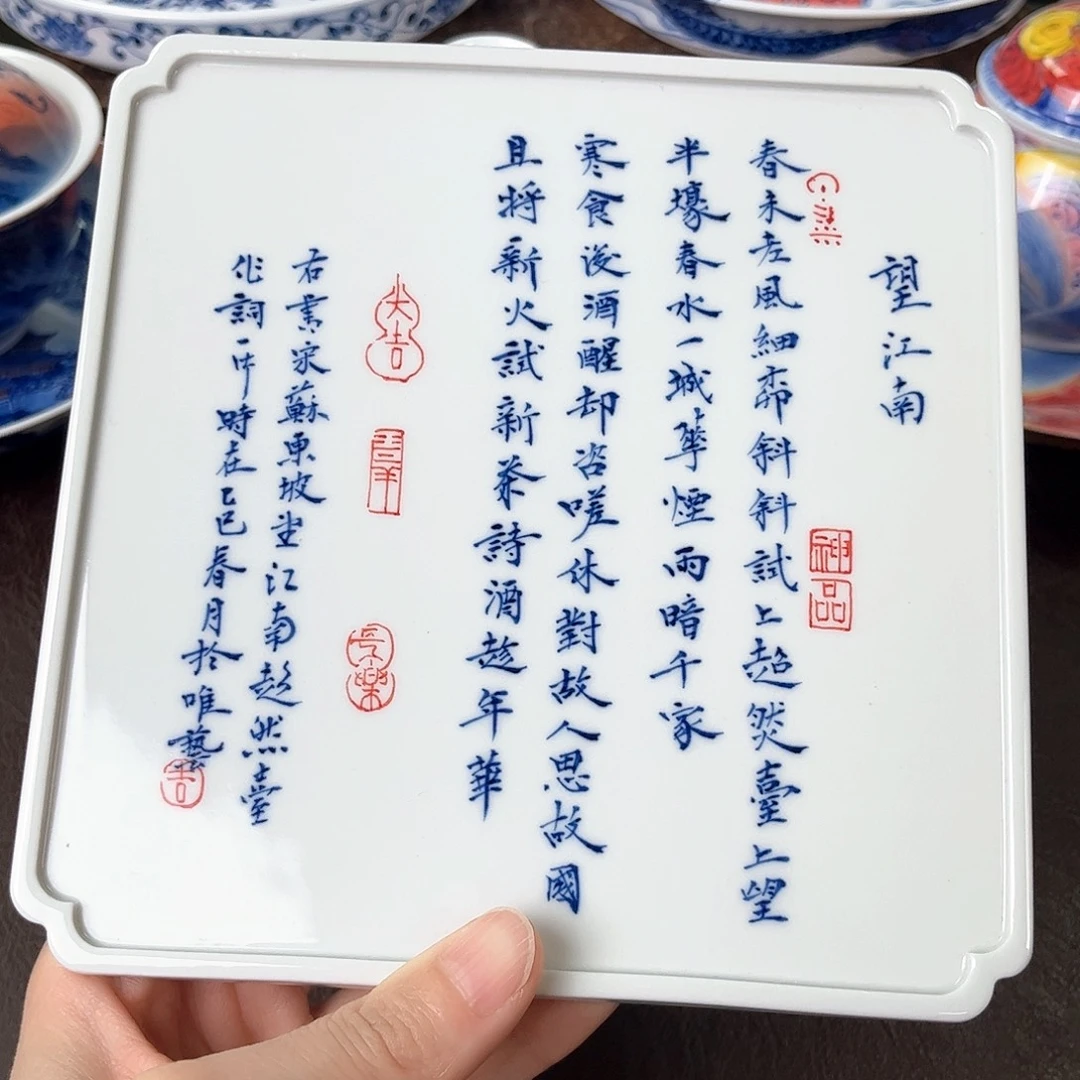 望江南
春未老風細柳斜斜試上超然臺上望
半壕春水一城華煙雨暗千家
寒食後酒醒却咨嗟休對故人思故國
且將新火試新茶詩酒趁年華
右書宋蘇東坡望江南超然臺
作詞一首時在乙巳春月於唯藝
神品
大吉
吉羊
長樂
吉